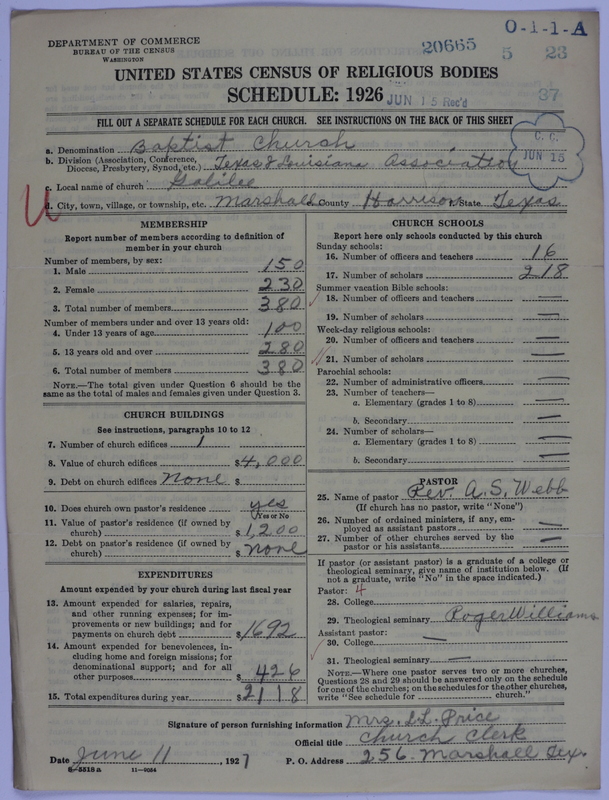 O-1-1-A
DEPARTMENT OF COMMERCE
BUREAU OF THE CENSUS
WASHINGTON
20665 5 23
UNITED STATES CENSUS OF RELIGIOUS BODIES
SCHEDULE: 1926
JUN 15 Rec'd 37
FILL OUT A SEPARATE SCHEDULE FOR EACH CHURCH. SEE INSTRUCTIONS ON THE BACK OF THIS SHEET
C. C.
JUN 15
a. Denomination Baptist Church
b. Division (Association, Conference,
Diocese, Presbytery, Synod, etc.) Texas & Louisiana Association
c. Local name of church Galilee
d. City, town, village, or township, etc. Marshall County Harrison State Texas
MEMBERSHIP
Report number of members according to definition of
member in your church
Number of members, by sex:
1. Male 150
2. Female 230
3. Total number of members 380
Number of members under and over 13 years old:
4. Under 13 years of age 100
5. 13 years old and over 280
6. Total number of members 380
NOTE.—The total given under Question 6 should be the
same as the total of males and females given under Question 3.
CHURCH BUILDINGS
See instructions, paragraphs 10 to 12
7. Number of church edifices 1
8. Value of church edifices $4,000
9. Debt on church edifices None $
10. Does church own pastor's residence yes
(Yes or No
11. Value of pastor's residence (if owned by
church) $1,200
12. Debt on pastor's residence (if owned by
church) $ none
EXPENDITURES
Amount expended by your church during last fiscal year
13. Amount expended for salaries, repairs,
and other running expenses; for im-
provements or new buildings; and for
payments on church debt $1692
14. Amount expended for benevolences, in-
cluding home and foreign missions; for
denominational support; and for all
other purposes $ 426
15. Total expenditures during year $2118
CHURCH SCHOOLS
Report here only schools conducted by this church
Sunday schools:
16. Number of officers and teachers 16
17. Number of scholars 218
Summer vacation Bible schools:
18. Number of officers and teachers —
19. Number of scholars —
Week-day religious schools:
20. Number of officers and teachers —
21. Number of scholars —
Parochial schools:
22. Number of administrative officers —
23. Number of teachers—
a. Elementary (grades 1 to 8) —
b. Secondary —
24. Number of scholars—
a. Elementary (grades 1 to 8) —
b. Secondary —
PASTOR
25. Name of pastor Rev. A. S. Webb
(If church has no pastor, write "None")
26. Number of ordained ministers, if any, em-
ployed as assistant pastors —
27. Number of other churches served by the
pastor or his assistants —
If pastor (or assistant pastor) is a graduate of a college or
theological seminary, give name of institution below. (If
not a graduate, write "No" in the space indicated.)
Pastor: 4
28. College
29. Theological seminary Roger Williams
Assistant pastor:
30. College —
31. Theological seminary —
NOTE.—Where one pastor serves two or more churches,
Questions 28 and 29 should be answered only on the schedule
for one of the churches; on the schedules for the other churches,
write "See schedule for church."
Signature of person furnishing information Mrs. S. L. Price
Official title Church Clerk
Date June 11, 1927 P. O. Address 256. Marshall Tex.
8-5518a 11-9054